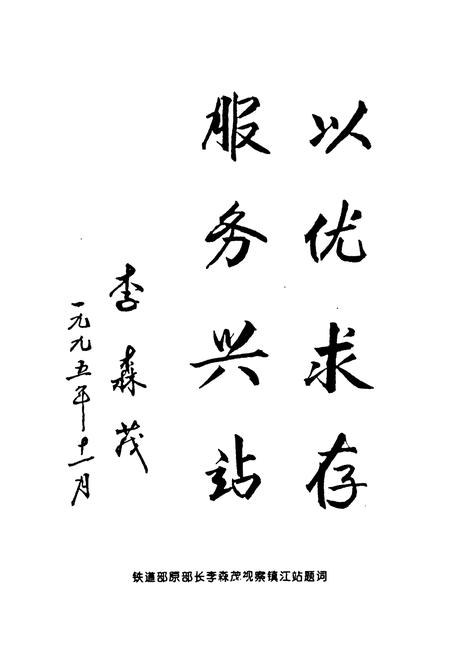 以优求存
服务兴站
李森茂
一九九五年十一月
铁道部原部长李森茂视察镇江站题词